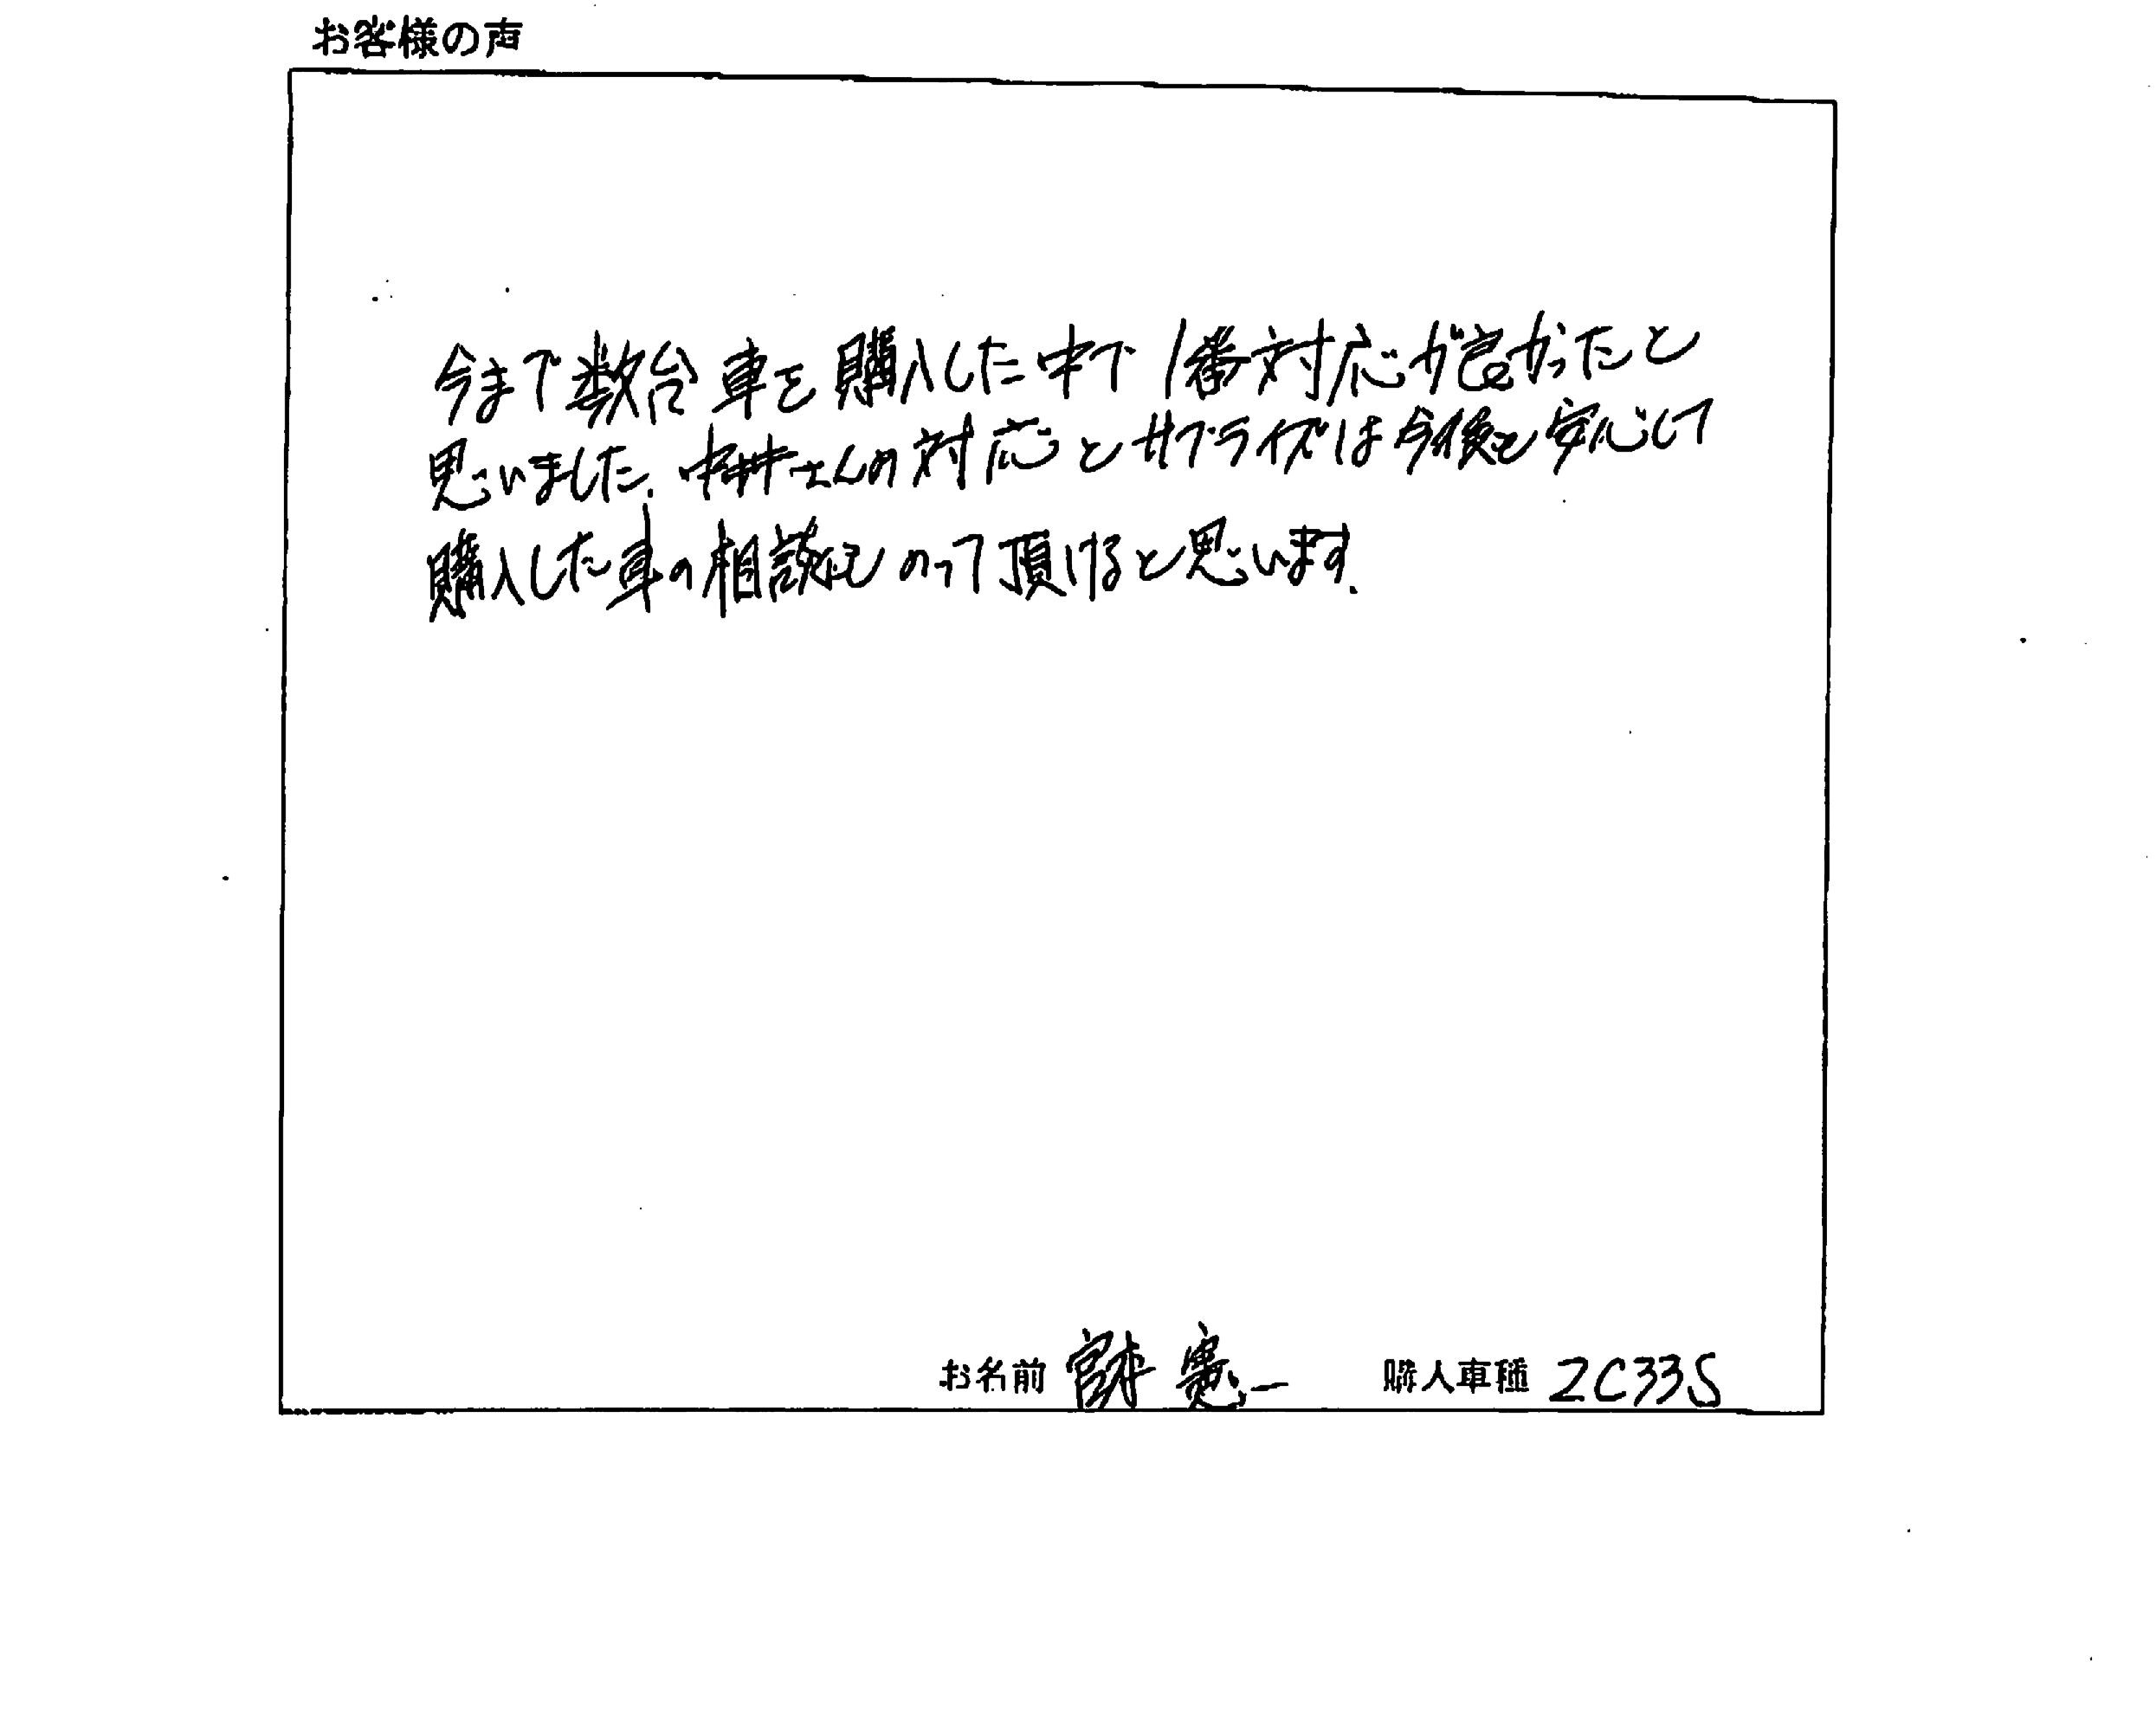 お客様の声
今まで数台車を購入した中で1番対応が良かったと
思いました。中井さんの対応とサプライズは今後も安心して
購入した車の相談にものって頂けると思います。
お名前 憲一 購入車種 ZC33S